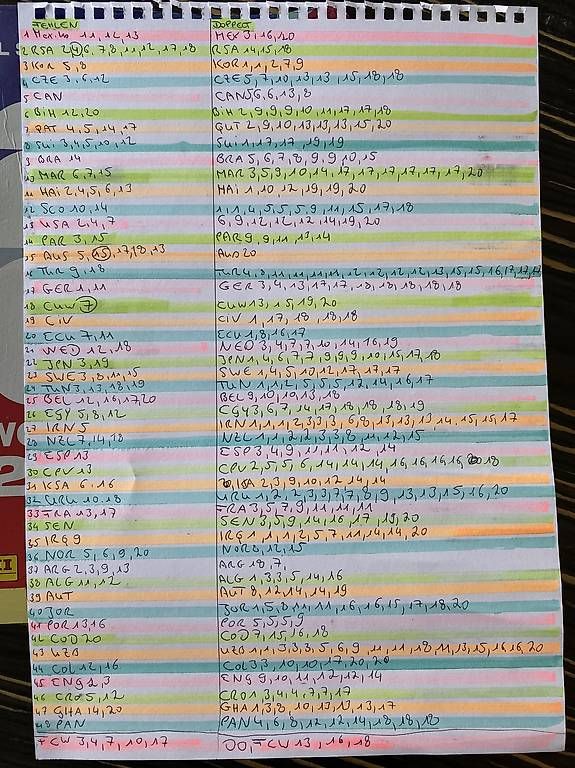 FEHLEN DOPPELT
1 Mexiko 11, 12, 13 MEX 3, 16, 20
2 RSA 2 4 6, 7, 8, 11, 12, 17, 18 RSA 14, 15, 18
3 KOR 5, 8 KOR 1, 2, 7, 9
4 CZE 3, 6, 12 CZE 5, 7, 10, 13, 13, 15, 18, 18
5 CAN CAN 5, 6, 6, 13, 8
6 BiH 12, 20 BiH 2, 9, 9, 9, 10, 11, 17, 17, 18
7 QAT 4, 5, 14, 17 QUT 2, 9, 10, 13, 13, 13, 15, 20
8 Sui 3, 4, 5, 10, 12 Sui 1, 17, 17, 19, 19
9 BRA 14 BRA 5, 6, 7, 8, 9, 9, 10, 15
10 MAR 6, 7, 15 MAR 3, 5, 9, 10, 14, 17, 17, 17, 17, 17, 17, 20
11 HAi 2, 4, 5, 6, 13 HAi 1, 10, 12, 19, 19, 20
12 SCO 10, 14 1, 1, 4, 5, 5, 5, 9, 11, 15, 17, 18
13 USA 2, 4, 7 6, 9, 12, 12, 12, 14, 19, 20
14 PAR 3, 15 PAR 9, 9, 11, 13, 14
15 AUS 5, 15, 17, 18, 13 AUS 20
16 TUR 9, 18
17 GER 1, 11 GER 3, 4, 13, 17, 17, 18, 18, 18, 18, 18
18 CUW 7 CUW 13, 15, 19, 20
19 CiV CiV 1, 17, 18, 18, 18
20 ECU 7, 11 ECU 1, 8, 16, 17
21 NED 12, 18 NED 3, 4, 7, 7, 10, 14, 16, 19
22 JPN 3, 19 JPN 1, 4, 6, 7, 7, 9, 9, 9, 10, 15, 17, 18
23 SWE 3, 8, 11, 15 SWE 1, 4, 5, 10, 12, 17, 17, 17
24 TUN 3, 13, 18, 19 TUN 1, 1, 2, 5, 5, 5, 12, 14, 16, 17
25 BEL 12, 16, 17, 20 BEL 9, 10, 10, 13, 18
26 EGY 5, 8, 12 EGY 3, 6, 7, 14, 17, 18, 18, 18, 19
27 IRN 5 IRN 1, 1, 1, 2, 3, 3, 3, 6, 8, 13, 13, 13, 14, 15, 15, 17
28 NZL 7, 14, 18 NZL 1, 1, 2, 2, 3, 3, 8, 11, 12, 15
29 ESP 13 ESP 3, 4, 9, 11, 11, 12, 14
30 CPV 13 CPV 2, 5, 5, 6, 14, 14, 14, 16, 16, 16, 16, 18
31 KSA 6, 16 KSA 2, 3, 9, 10, 12, 14, 14
32 URU 10, 18 URU 1, 2, 2, 3, 3, 7, 7, 8, 9, 13, 13, 15, 16, 20
33 FRA 13, 17 FRA 3, 5, 7, 9, 11, 11, 11
34 SEN SEN 3, 5, 9, 14, 16, 17, 19, 20
35 IRQ 9 IRQ 1, 1, 1, 2, 5, 7, 11, 14, 14, 20
36 NOR 5, 6, 9, 20 NOR 8, 12, 15
37 ARG 2, 3, 9, 13 ARG 18, 7,
38 ALG 11, 12 ALG 1, 3, 3, 5, 14, 16
39 AUT AUT 8, 12, 14, 14, 19
40 JOR JOR 1, 5, 8, 11, 11, 16, 16, 15, 17, 18, 20
41 POR 13 16 POR 5, 5, 5, 9
42 COD 20 COD 7, 15, 16, 18
43 UZB UZB 1, 1, 3, 3, 3, 5, 6, 9, 11, 11, 18, 11, 13, 15, 16, 16, 20
44 COL 12, 16 COL 3, 3, 10, 10, 17, 20, 20
45 ENG 2, 3 ENG 9, 10, 11, 12, 12, 14
46 CRO 5, 12 CRO 1, 3, 4, 4, 7, 7, 17
47 GHA 14, 20 GHA 1, 3, 8, 10, 13, 13, 13, 17
48 PAN PAN 4, 6, 8, 12, 12, 14, 18, 18, 18
FCW 3, 4, 7, 10, 17 00, FCW 13, 16, 18